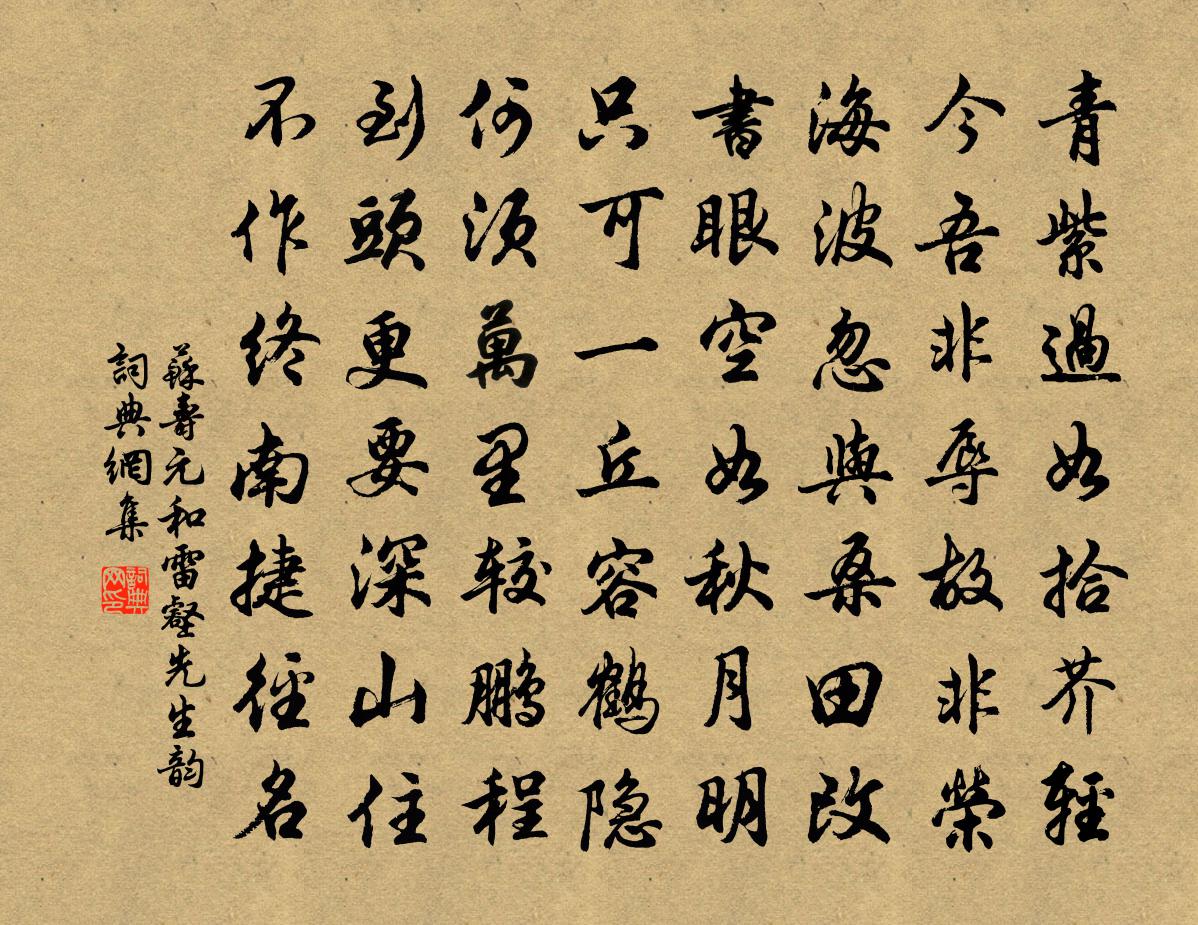 青紫過如拾芥輕
今吾非辱故非榮
海波忽與桑田改
書眼空如秋月明
只可一丘容鶴隐
何須萬里較鵬程
到頭更要深山住
不作終南捷徑名
蘇壽元和雷壑先生韵
詞典網集
詞典
网印